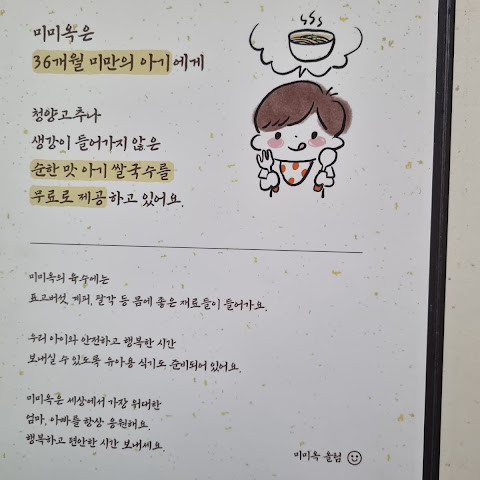 미미옥은
36개월 미만의 아기에게
청양고추나
생강이 들어가지 않은
순한 맛 아기 쌀국수를
무료로 제공하고 있어요.
미미옥의 육수에는
표고버섯, 계피, 팔각 등 몸에 좋은 재료들이 들어가요.
우리 아이와 안전하고 행복한 시간
보내실 수 있도록 유아용 식기도 준비되어 있어요.
미미옥은 세상에서 가장 위대한
엄마, 아빠를 항상 응원해요.
행복하고 편안한 시간 보내세요.
미미옥 올림